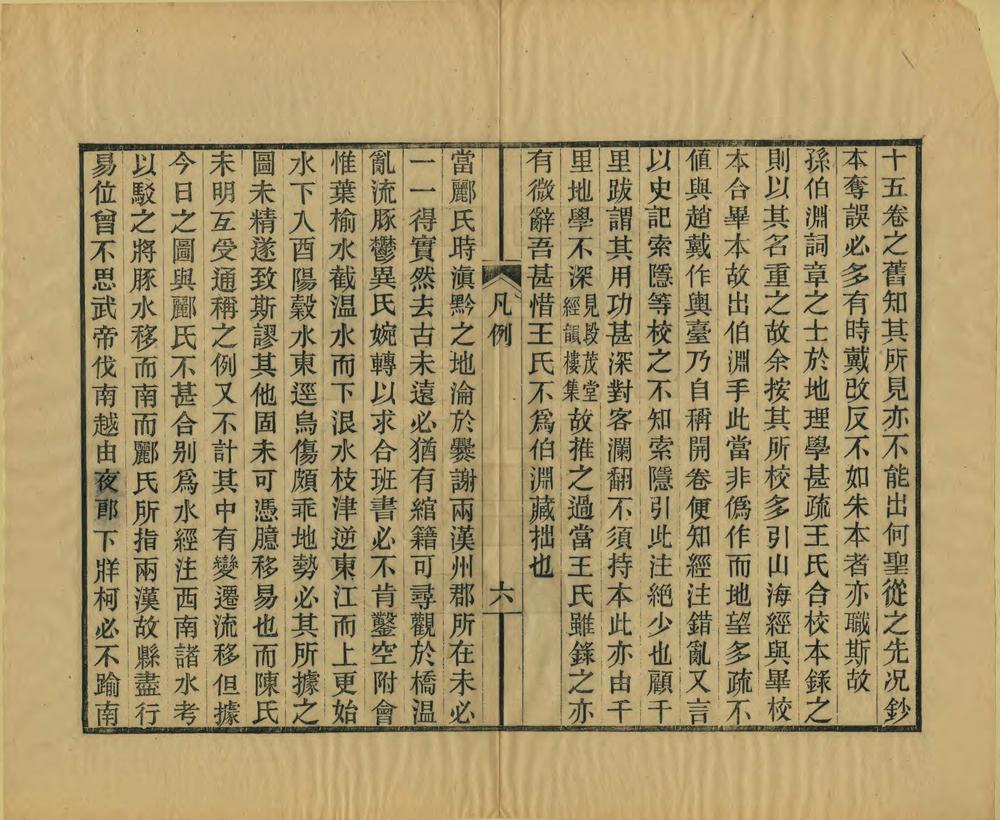 十五卷之舊知其所見亦不能出何聖從之先况鈔
本奪誤必多有時戴改反不如朱本者亦職斯故
孫伯淵詞章之士於地理學甚疏王氏合校本錄之
則以其名重之故余按其所校多引山海經與畢校
本合畢本故出伯淵手此當非僞作而地望多疏不
値與趙戴作輿臺乃自稱開卷便知經注錯亂又言
以史記索隱等校之不知索隱引此注絕少也顧千
里跋謂其用功甚深對客瀾翻不須持本此亦由千
里地學不深見段茂堂經韻樓集故推之過當王氏雖錄之亦
有微辭吾甚惜王氏不爲伯淵藏拙也
凡例
六
當酈氏時滇黔之地淪於爨謝兩漢州郡所在未必
一一得實然去古未遠必猶有綰籍可尋觀於橋溫
亂流豚鬱異氏婉轉以求合班書必不肯鑿空附會
惟葉榆水截温水而下浪水枝津逆東江而上更始
水下入酉陽榖水東逕烏傷頗乖地勢必其所據之
圖未精遂致斯謬其他固未可憑臆移易也而陳氏
未明互受通稱之例又不計其中有變遷流移但據
今日之圖與酈氏不甚合别爲水經注西南諸水考
以駁之將豚水移而南而酈氏所指兩漢故縣盡行
易位曾不思武帝伐南越由夜郎下牂柯必不踰南